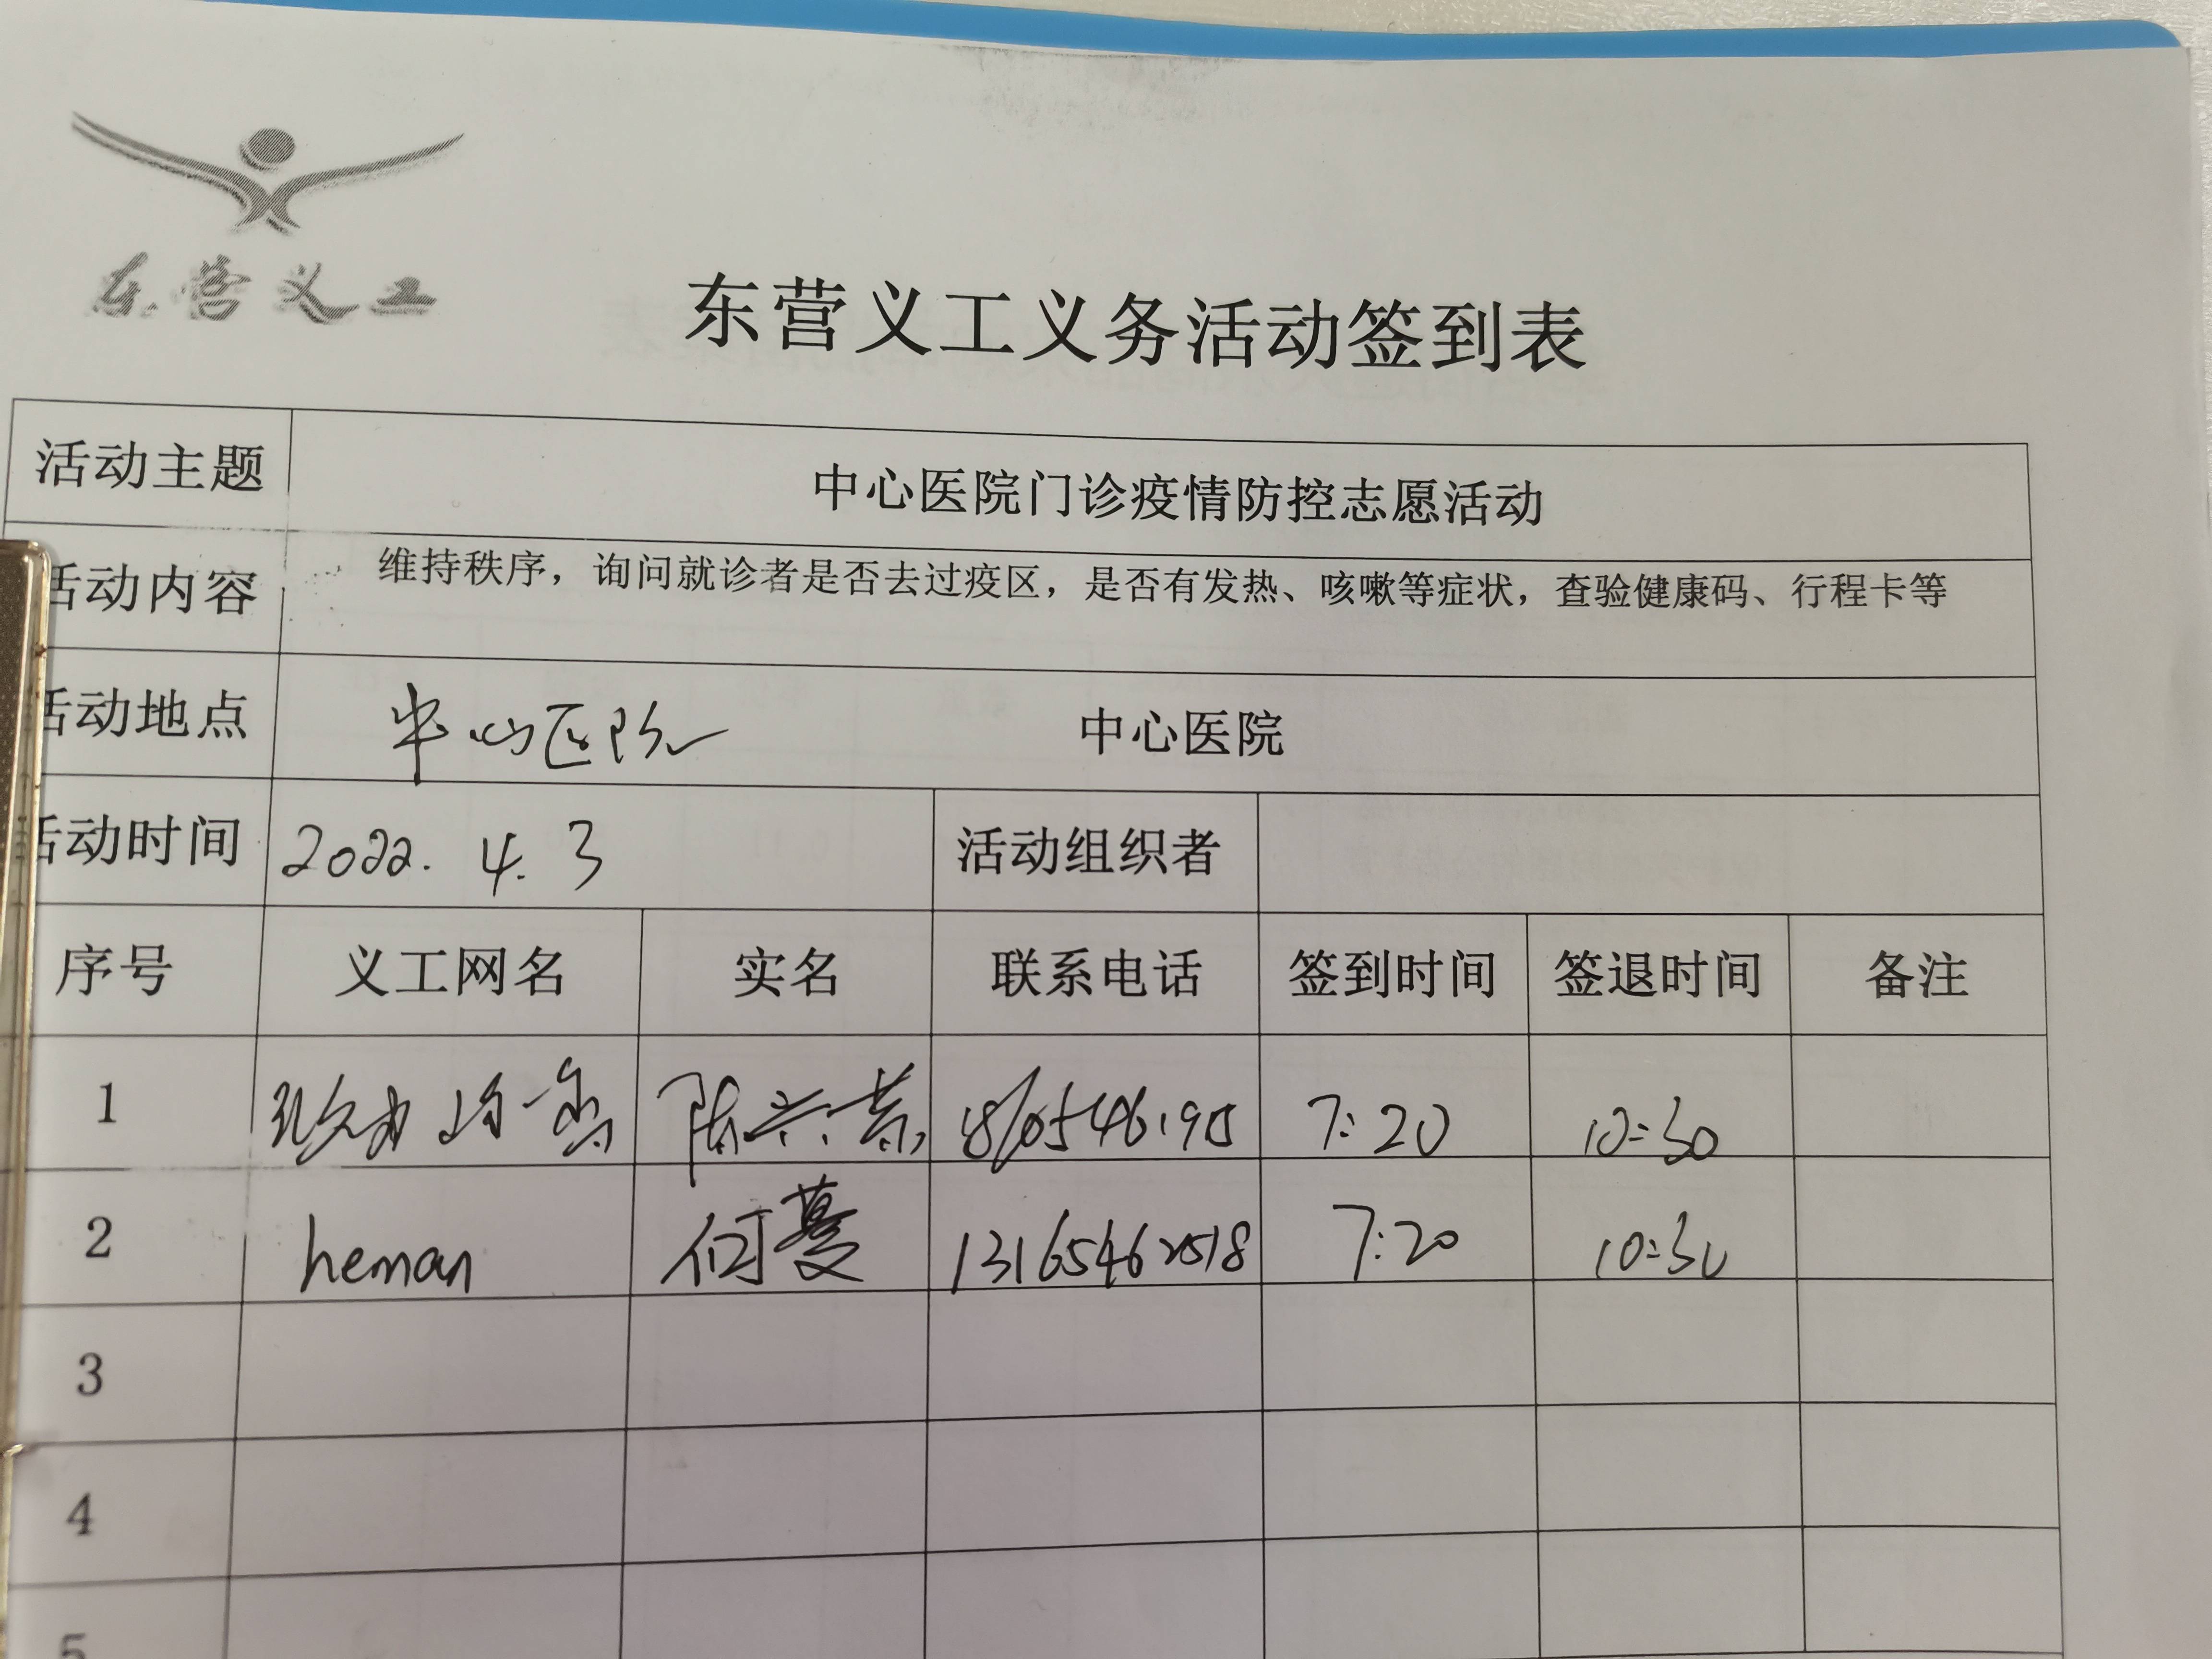 东营义工
东营义工义务活动签到表
活动主题 中心医院门诊疫情防控志愿活动
活动内容 维持秩序，询问就诊者是否去过疫区，是否有发热、咳嗽等症状，查验健康码、行程卡等
活动地点 中心医院 中心医院
活动时间 2022. 4. 3 活动组织者
序号 义工网名 实名 联系电话 签到时间 签退时间 备注
1 7:20 10:30
2 heman 何蔓 7:20 10:30
3
4
5